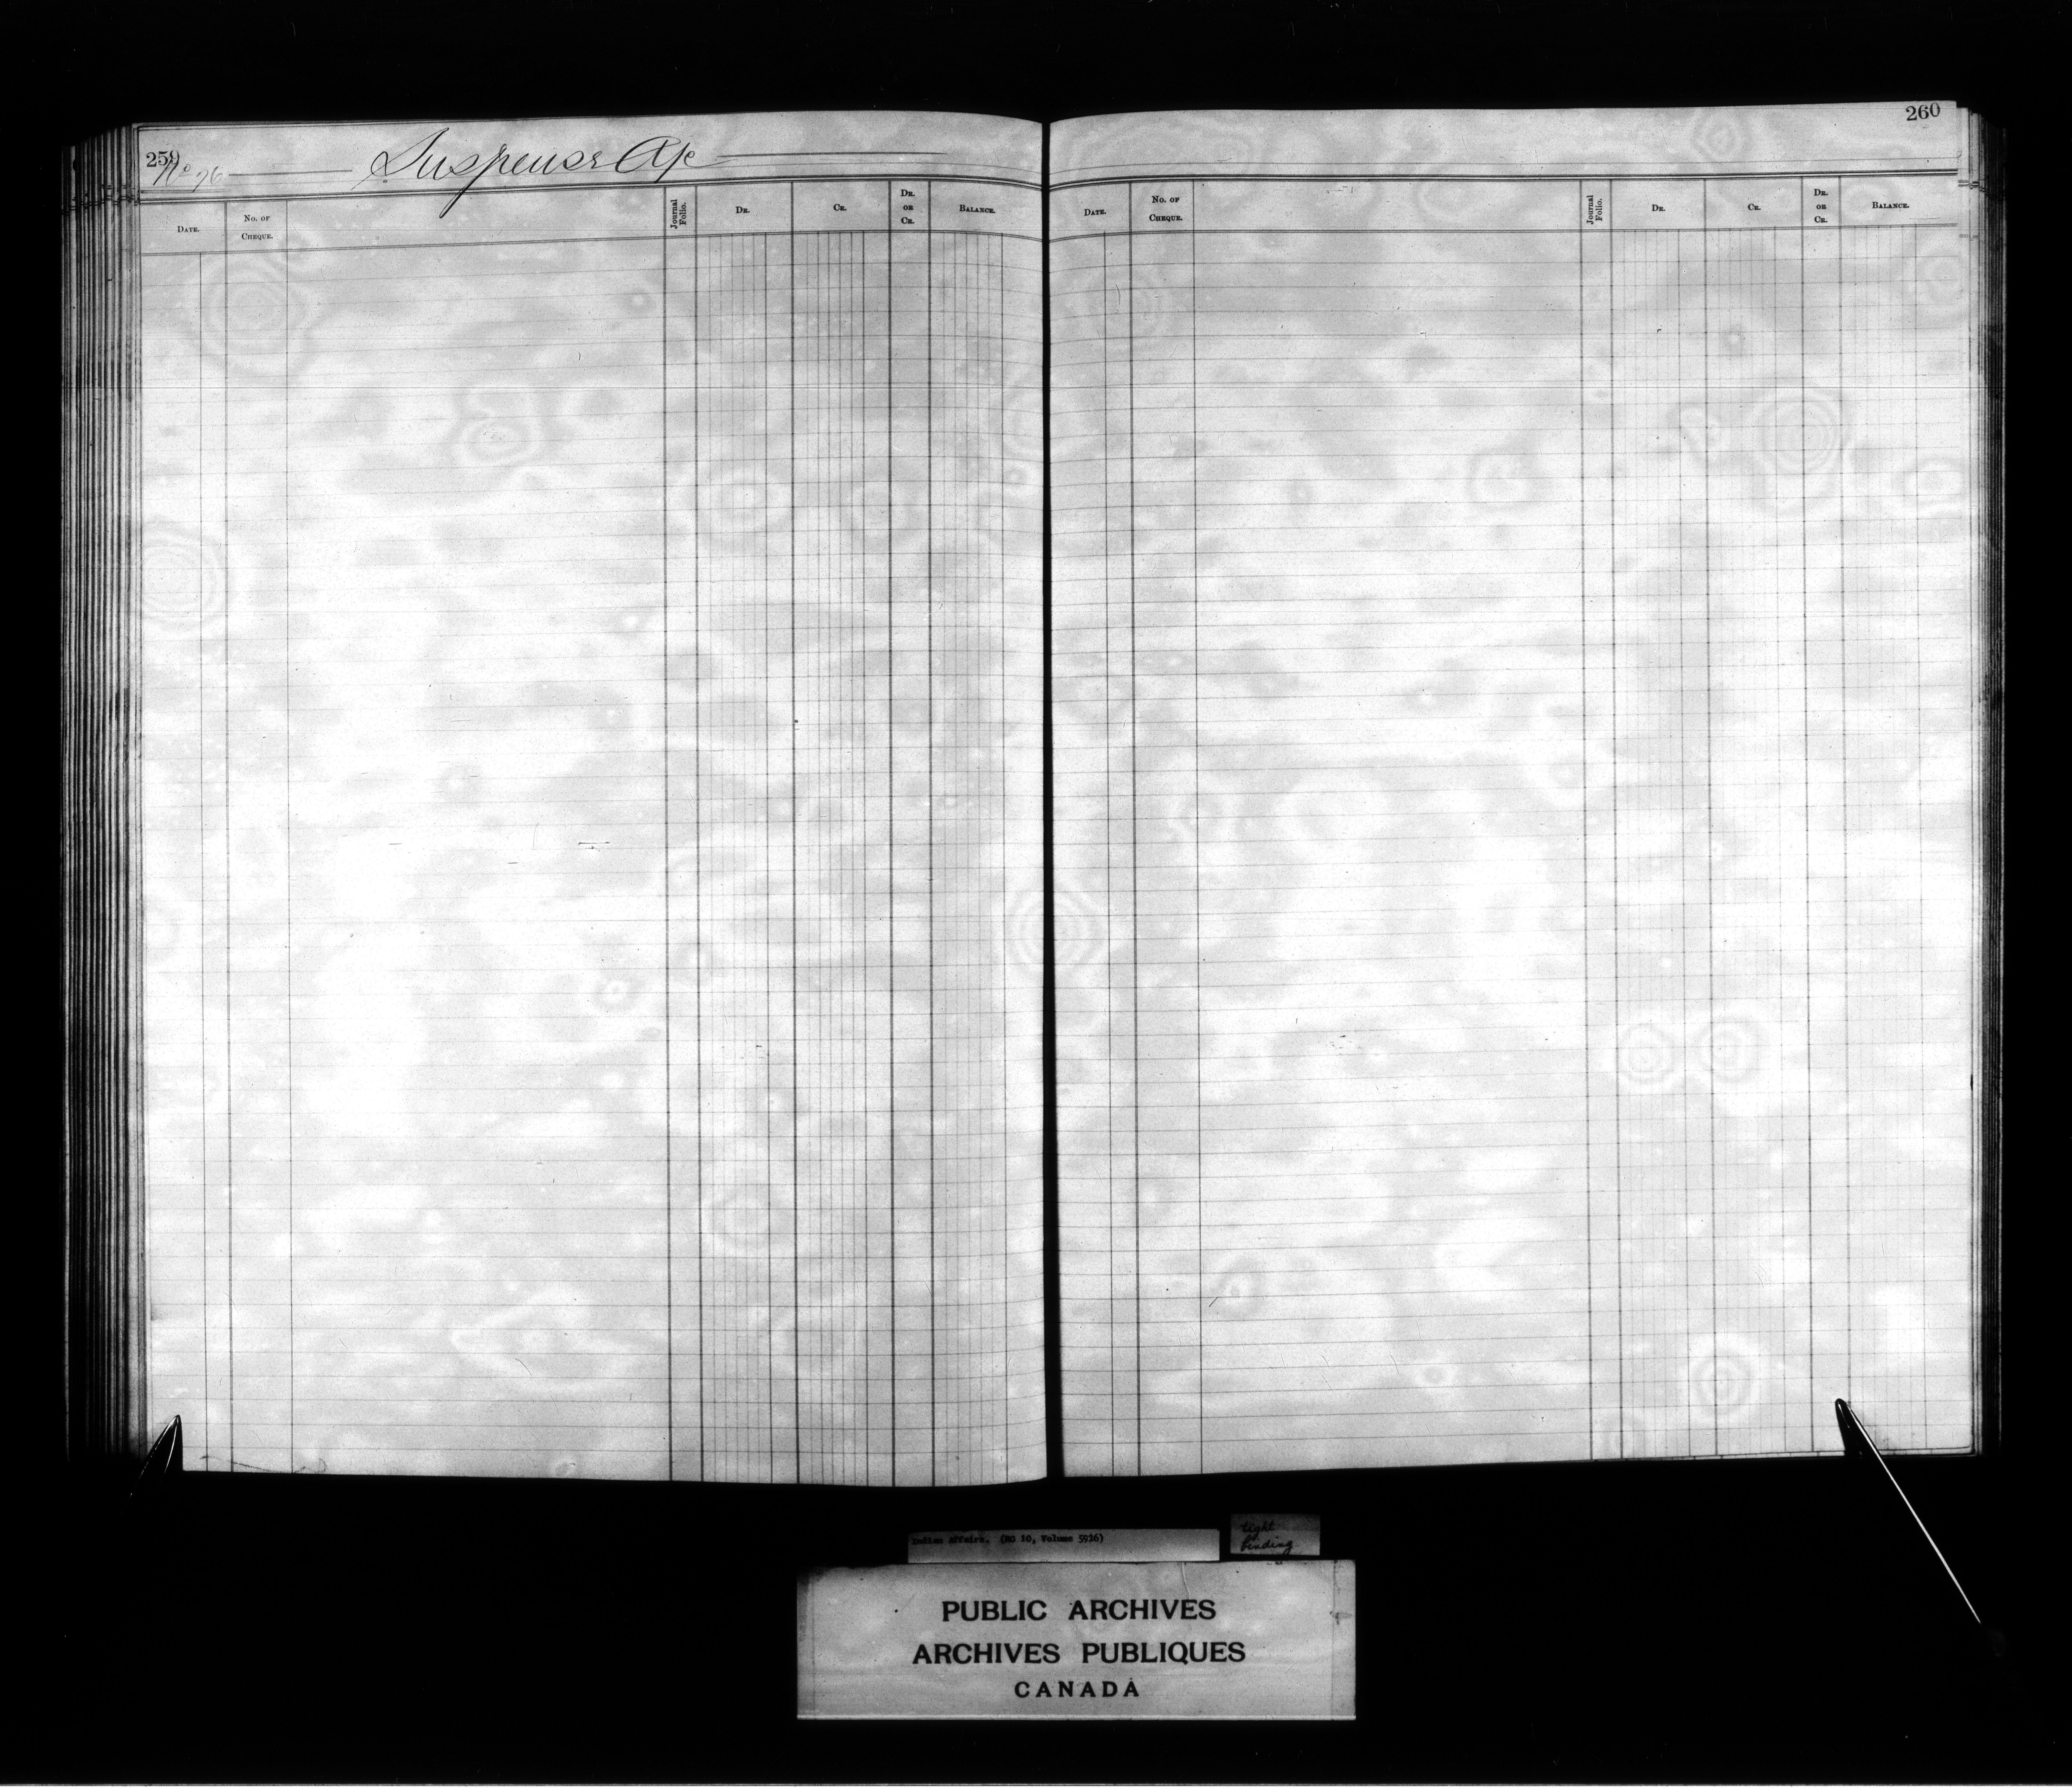 259
No 76 Suspense A/c
DATE. No. OF CHEQUE. Journal Folio. DR. CR. DR. OR CR. BALANCE.
260
DATE. No. OF CHEQUE. Journal Folio. DR. CR. DR. OR CR. BALANCE.
Indian Affairs. (RG 10, Volume 5926)
tight
binding
PUBLIC ARCHIVES
ARCHIVES PUBLIQUES
CANADA